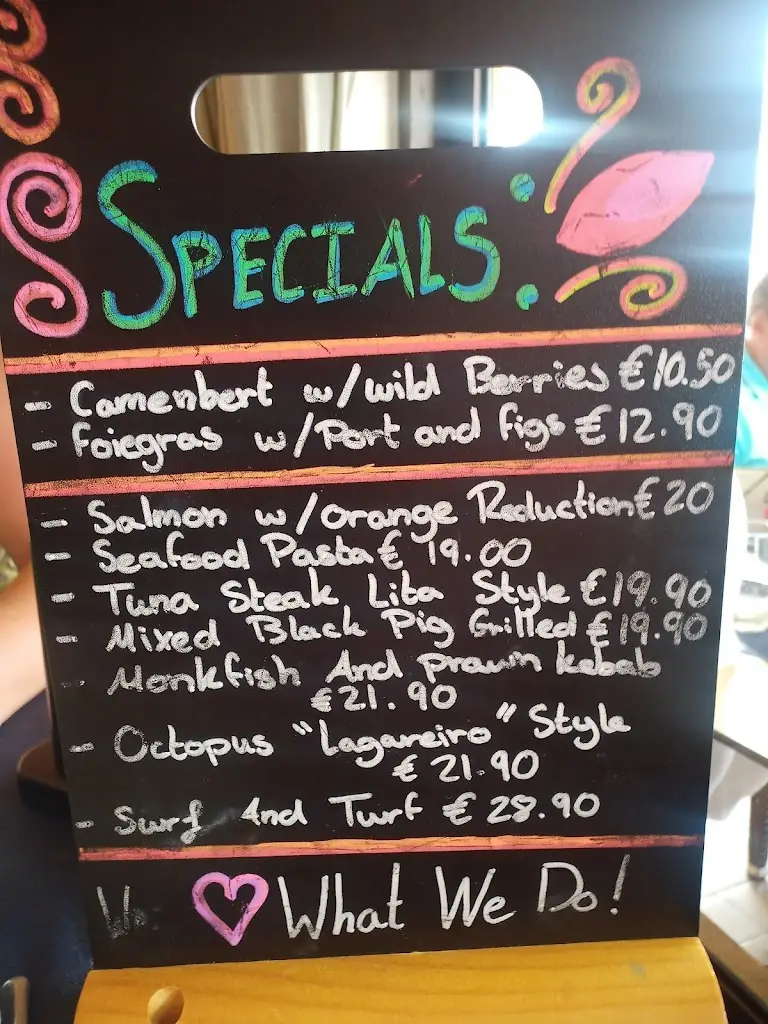 SPECIALS:
- Camenbert w/wild Berries €10.50
- foiegras w/Port and figs €12.90
- Salmon w/orange Reduction €20
- Seafood Pasta € 19.00
- Tuna Steak Lita Style €19.90
- Mixed Black Pig Grilled €19.90
- Monkfish And prawn kebab
€21.90
- Octopus "Lagareiro" Style
€ 21.90
- Surf And Turf € 28.90
We ♥ What We Do!